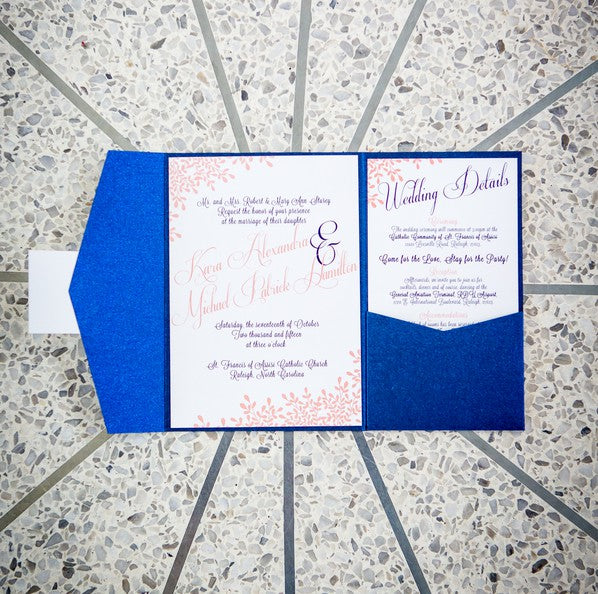 Mr. and Mrs. Robert & Mary Ann Starey
Request the honor of your presence
at the marriage of their daughter
Kara Alexandra
&
Michael Patrick Hamilton
Saturday, the seventeenth of October
Two thousand and fifteen
at three o'clock
St. Francis of Assisi Catholic Church
Raleigh, North Carolina
Wedding Details
Ceremony
The wedding ceremony will commence at 3:00pm at the
Catholic Community of St. Francis of Assisi
Leesville Road, Raleigh, 27613
Come for the Love, Stay for the Party!
Reception
Afterwards, we invite you to join us for
cocktails, dinner and of course dancing at the
General Aviation Terminal, RDU Airport,
International Boulevard Raleigh, 27623
Accommodations
of rooms has been